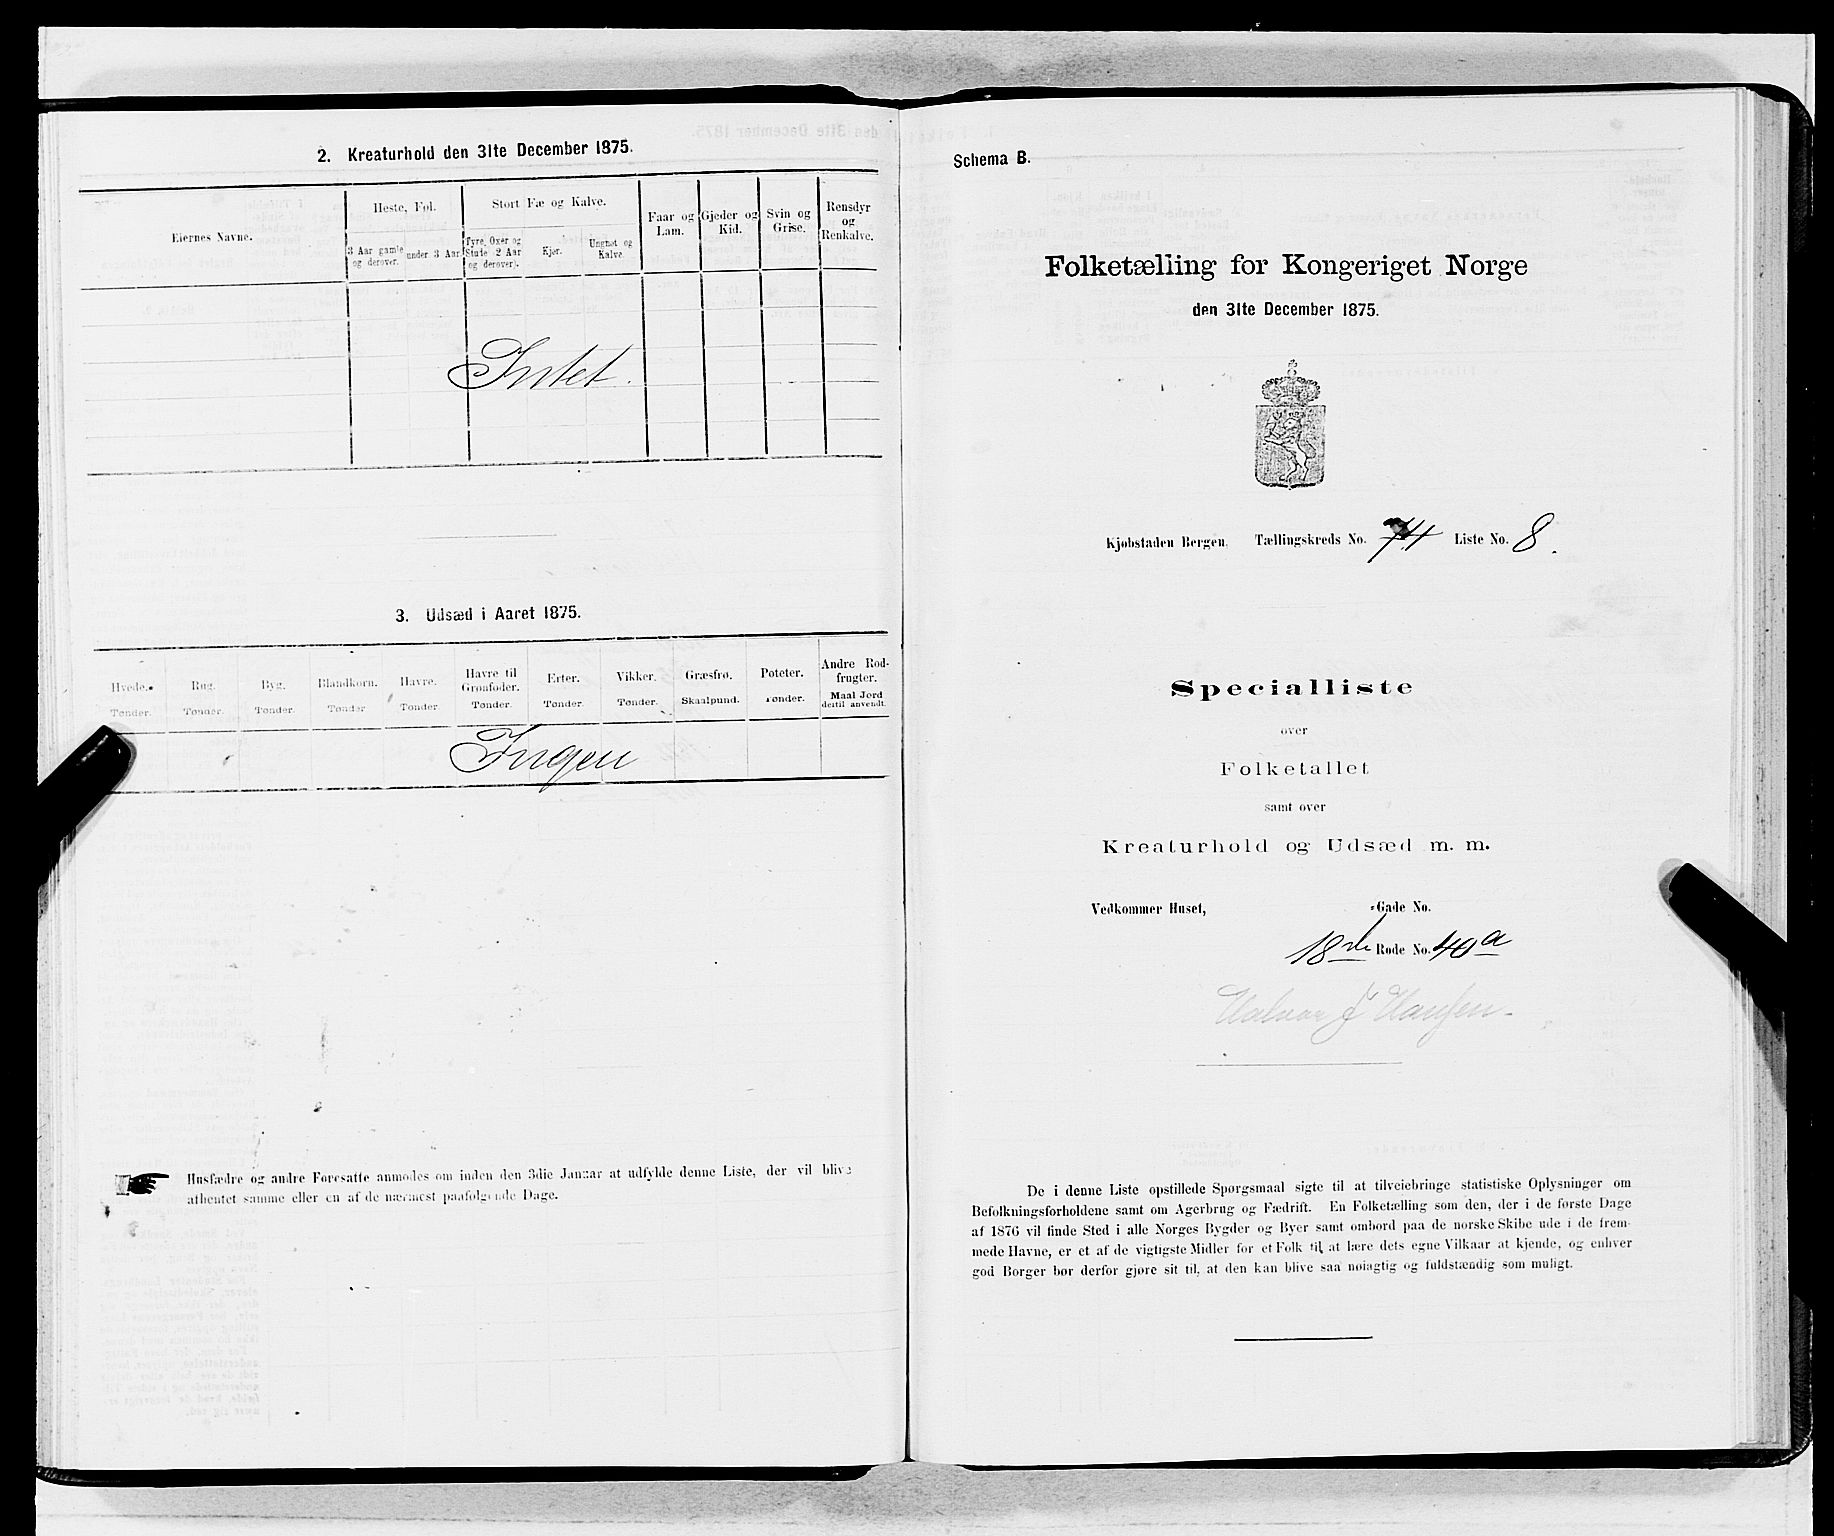 2. Kreaturhold den 31te December 1875.
Eiernes Navne.
Heste, Føl.
3 Aar gamle og derover.
under 3 Aar.
Stort Fæ og Kalve.
Tyre, Oxer og Stute (2 Aar og derover).
Kjør.
Ungnøt og Kalve.
Faar og Lam.
Gjeder og Kid.
Svin og Grise.
Rensdyr og Renkalve.
Intet.
3. Udsæd i Aaret 1875.
Hvede. Tønder.
Rug. Tønder.
Byg. Tønder.
Blandkorn. Tønder
Havre. Tønder.
Havre til Grønfoder. Tønder.
Erter. Tønder.
Vikker. Tønder.
Græsfrø. Skaalpund.
Poteter. Tønder.
Andre Rodfrugter. Maal Jord dertil anvendt.
Ingen
Husfædre og andre Foresatte anmodes om inden den 3die Januar at udfylde denne Liste, der vil blive
afhentet samme eller en af de nærmest paafølgende Dage.
Schema B.
Folketælling for Kongeriget Norge
den 31te December 1875.
Kjøbstaden Bergen. Tællingskreds No. Liste No. 8.
Specialliste
over
Folketallet
samt over
Kreaturhold og Udsæd m. m.
Vedkommer Huset, -Gade No.
18de Rode No. 40a
J Hansen
De i denne Liste opstillede Spørgsmaal sigte til at tilveiebringe statistiske Oplysninger om
Befolkningsforholdene samt om Agerbrug og Fædrift. En Folketælling som den, der i de første Dage
af 1876 vil finde Sted i alle Norges Bygder og Byer samt ombord paa de norske Skibe ude i de frem-
mede Havne, er et af de vigtigste Midler for et Folk til at lære dets egne Vilkaar at kjende, og enhver
god Borger bør derfor gjøre sit til, at den kan blive saa nøiagtig og fuldstændig som muligt.